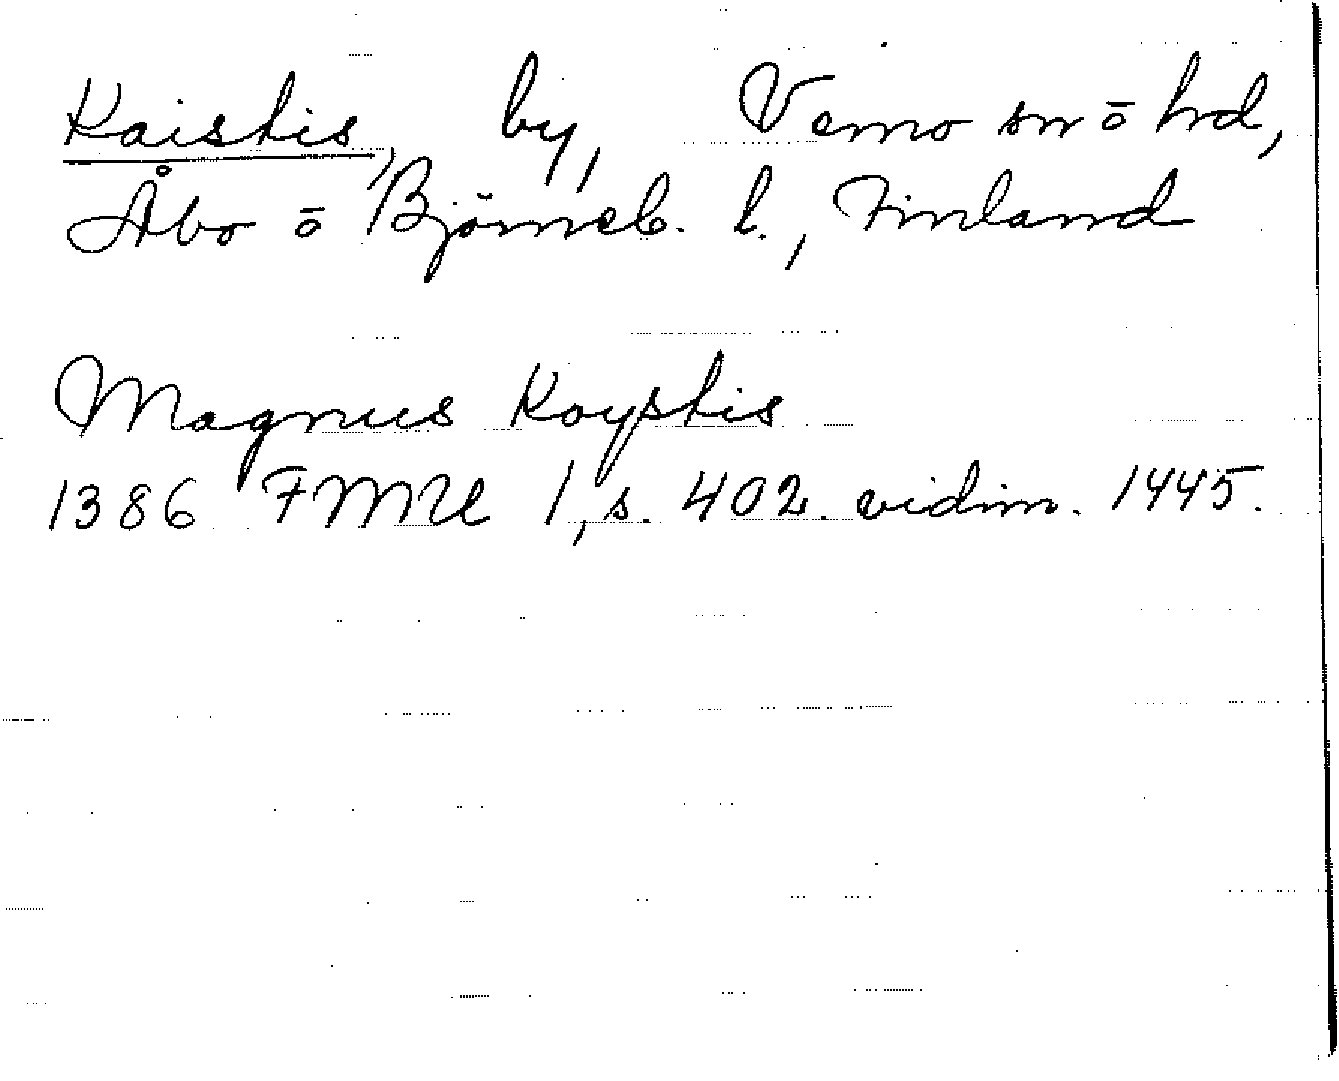 Kaistis, by, Vemo sn ō hd,
Åbo ō Björneb. l., Finland
Magnus Koystis
1386 FMU 1, s. 402. vidim. 1445.